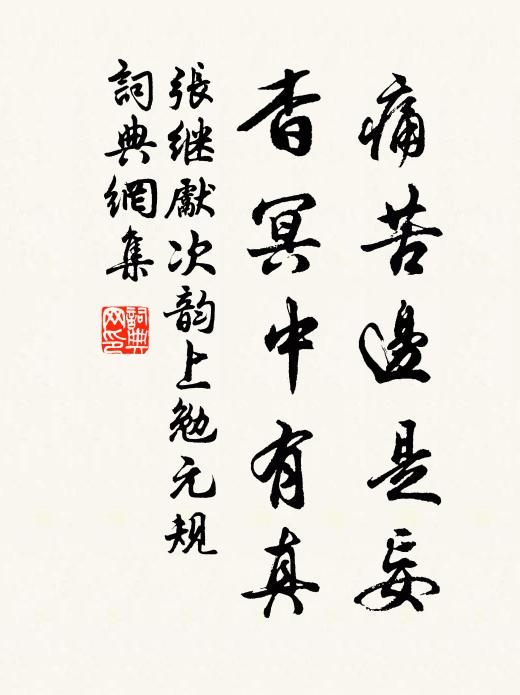 痛苦邊是妄
杳冥中有真
張继獻次韵上勉元規
詞典網集
詞典
网印